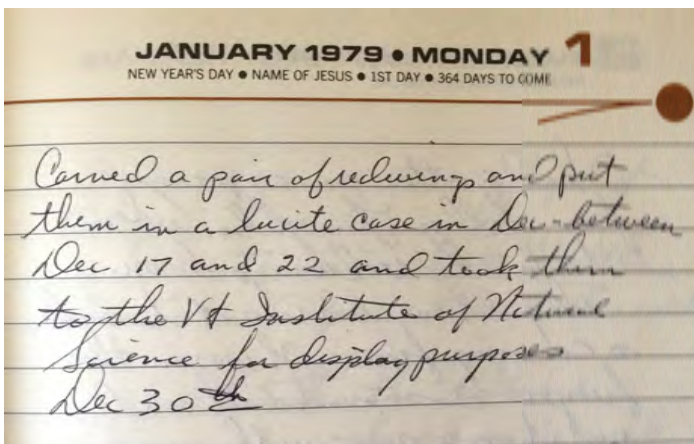 JANUARY 1979 • MONDAY 1
NEW YEAR'S DAY • NAME OF JESUS • 1ST DAY • 364 DAYS TO COME
Carved a pair of redwings and put
them in a lucite case in Dec - between
Dec 17 and 22 and took them
to the Vt Institute of Natural
Science for display purposes
Dec 30th